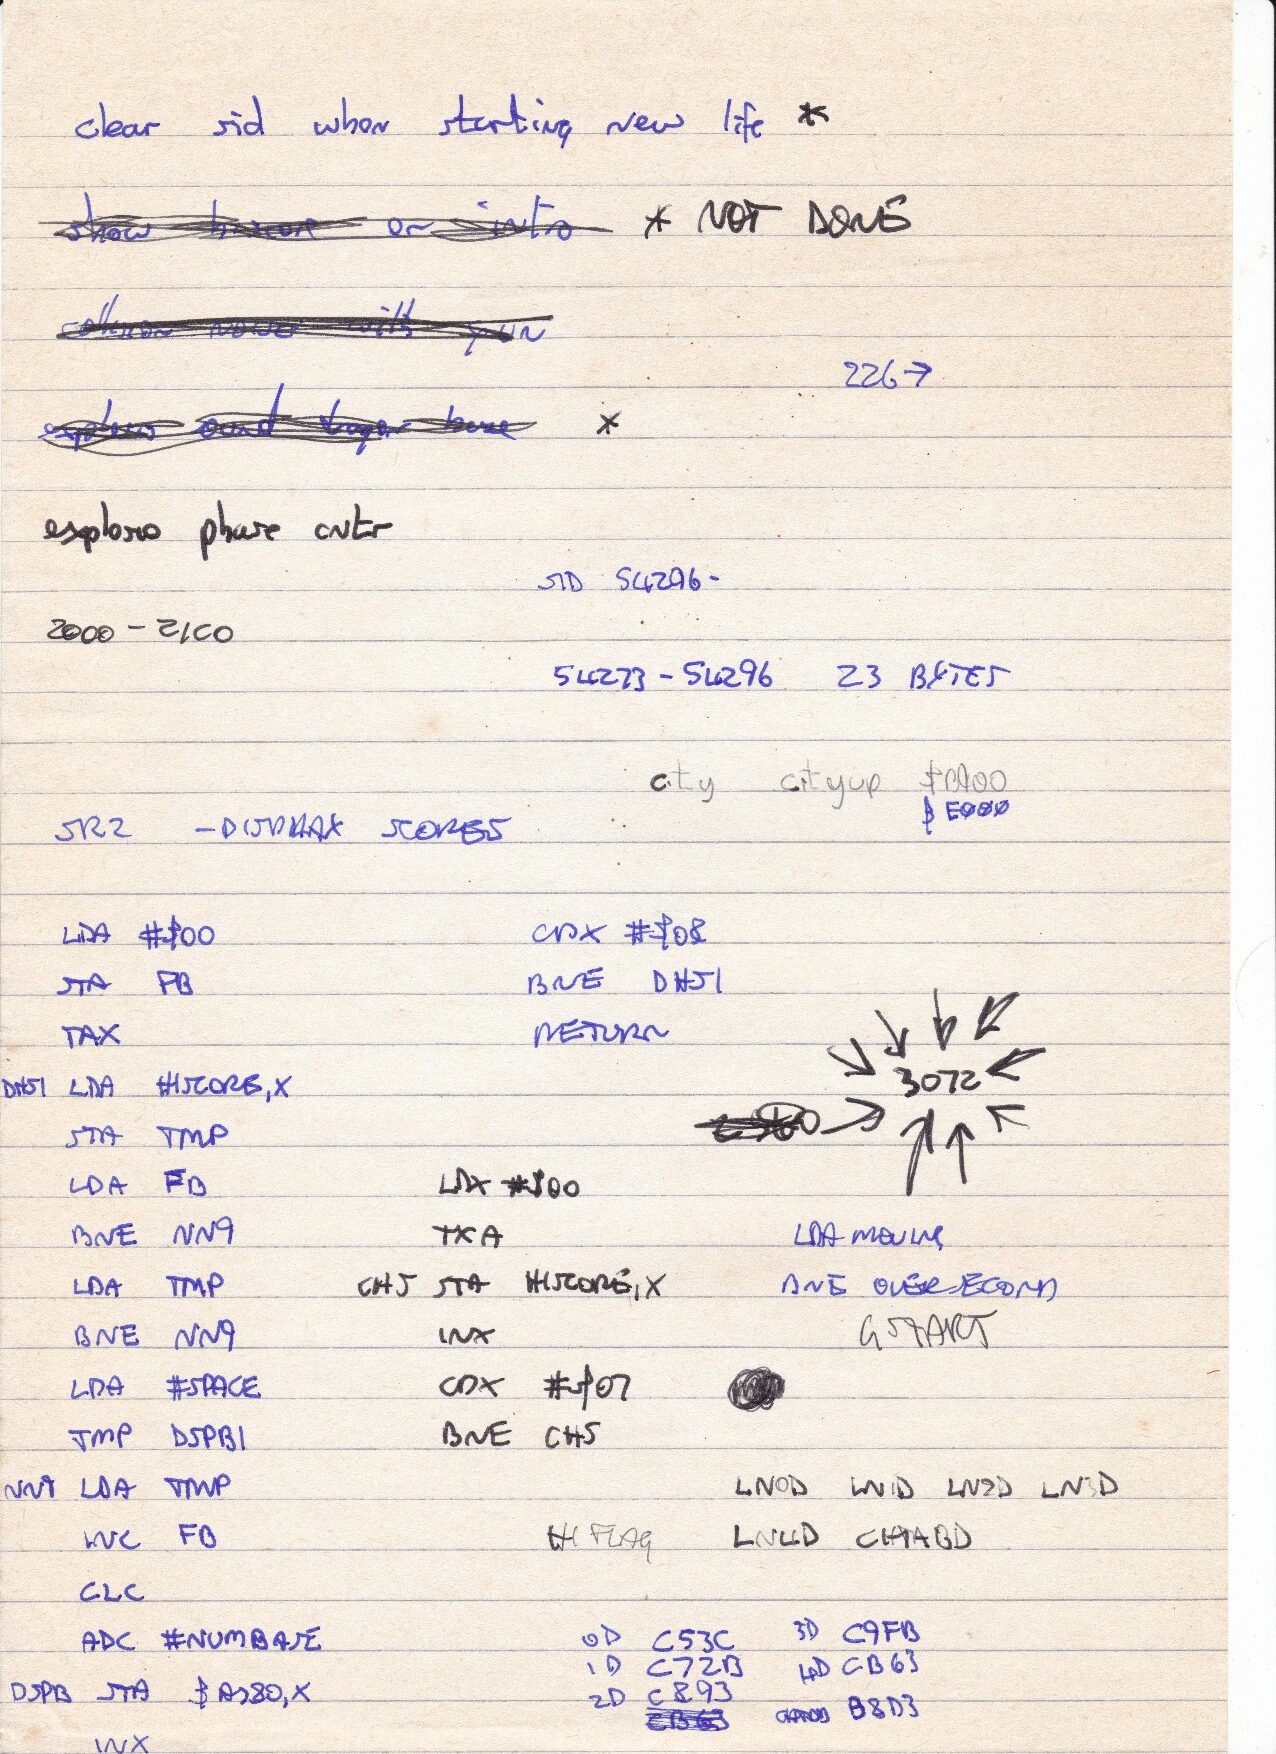 clear sid when starting new life *
show        on intro * NOT DONE
collision       with gun
226→
explosion sound       base *
explosion phase cntr
SID 54296-
2000 - 21C0
54273 - 54296 23 BYTES
city cityup
$E000
SR2 - SCORES
LDA #$00 CPX #$08
STA FB BNE DHS1
TAX RETURN
3072
DHS1 LDA HISCORE,X
STA TMP
LDA FB LDX #$00
BNE NN9 TXA LDA MOVING
LDA TMP CHS STA HISCORE,X BNE OVERSECOND
BNE NN9 INX GSTART
LDA #SPACE CPX #$07
JMP DSPB1 BNE CHS
NN9 LDA TMP LN0D LN1D LN2D LN3D
INC FB HIFLAG LN4D CHTABD
CLC
ADC #NUMBASE 0D C53C 3D C9FB
1D C72B 4D CB63
DSPB STA ,X 2D C893
CB63 B8D3
INX